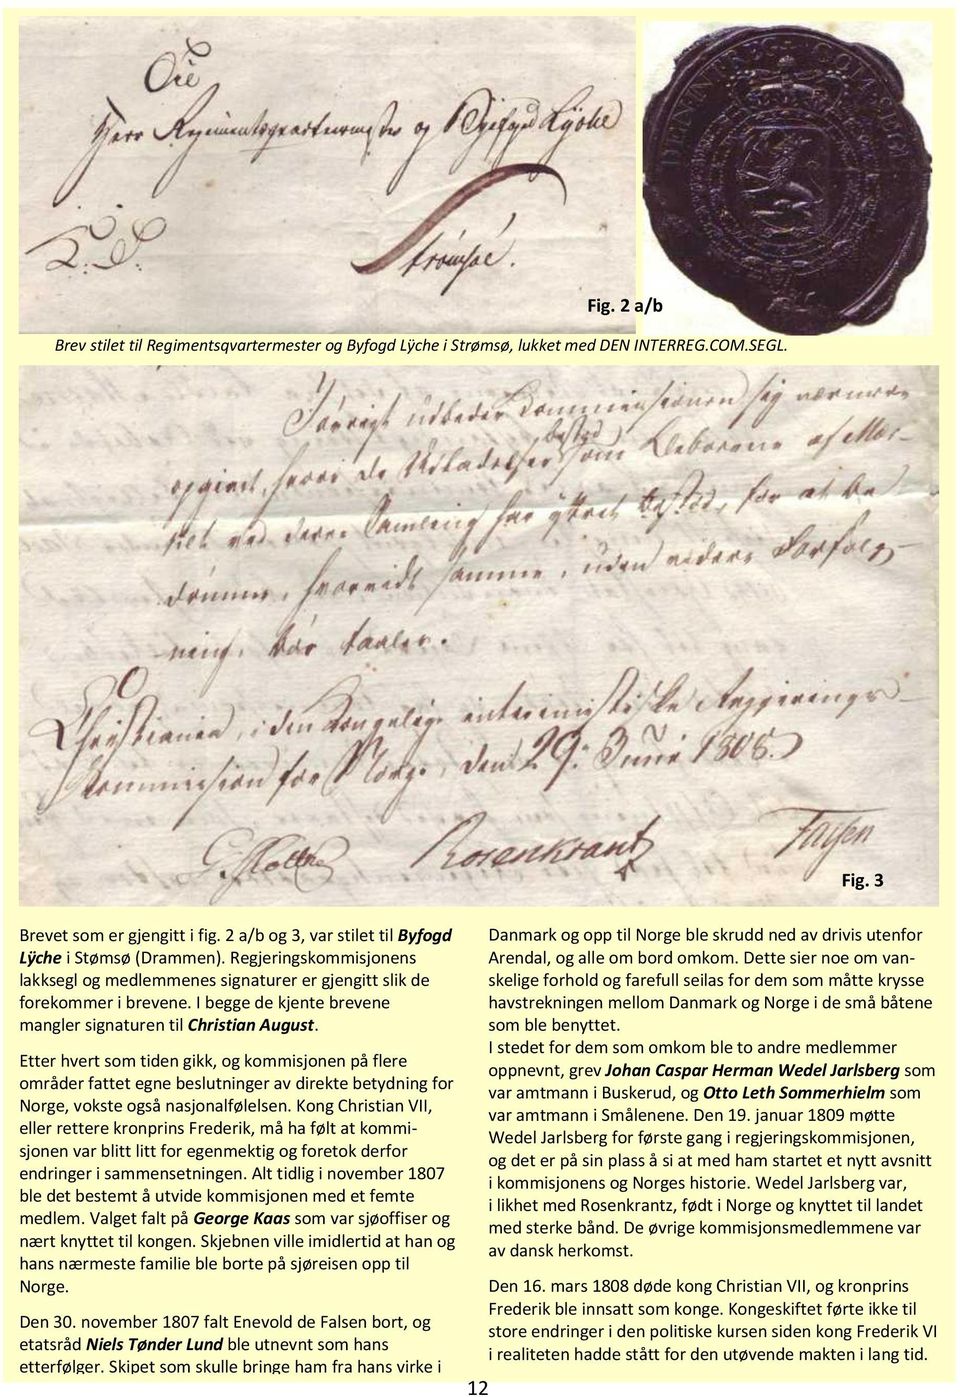 Herr Regimentsqvartermester og Byefoged Lÿche
Strømsøe.
Fig. 2 a/b
Brev stilet til Regimentsqvartermester og Byfogd Lÿche i Strømsø, lukket med DEN INTERREG.COM.SEGL.
Iøvrigt udbeder Commissionen sig nærmere
opgivet, hvori de Udladelser som Beboerne af
bestod
ved deres Samling har yttret bestod, for at be
dømme, hvorvidt samme, uden videre Forfølg-
ning, bør taales.
Christiania, i den Kongelige interimistiske Regjerings
Commission for Norge, den 29. Junii 1808.
Rosenkrantz Falsen
Fig. 3
Brevet som er gjengitt i fig. 2 a/b og 3, var stilet til Byfogd
Lÿche i Stømsø (Drammen). Regjeringskommisjonens
lakksegl og medlemmenes signaturer er gjengitt slik de
forekommer i brevene. I begge de kjente brevene
mangler signaturen til Christian August.
Etter hvert som tiden gikk, og kommisjonen på flere
områder fattet egne beslutninger av direkte betydning for
Norge, vokste også nasjonalfølelsen. Kong Christian VII,
eller rettere kronprins Frederik, må ha følt at kommi-
sjonen var blitt litt for egenmektig og foretok derfor
endringer i sammensetningen. Alt tidlig i november 1807
ble det bestemt å utvide kommisjonen med et femte
medlem. Valget falt på George Kaas som var sjøoffiser og
nært knyttet til kongen. Skjebnen ville imidlertid at han og
hans nærmeste familie ble borte på sjøreisen opp til
Norge.
Den 30. november 1807 falt Enevold de Falsen bort, og
etatsråd Niels Tønder Lund ble utnevnt som hans
etterfølger. Skipet som skulle bringe ham fra hans virke i
Danmark og opp til Norge ble skrudd ned av drivis utenfor
Arendal, og alle om bord omkom. Dette sier noe om van-
skelige forhold og farefull seilas for dem som måtte krysse
havstrekningen mellom Danmark og Norge i de små båtene
som ble benyttet.
I stedet for dem som omkom ble to andre medlemmer
oppnevnt, grev Johan Caspar Herman Wedel Jarlsberg som
var amtmann i Buskerud, og Otto Leth Sommerhielm som
var amtmann i Smålenene. Den 19. januar 1809 møtte
Wedel Jarlsberg for første gang i regjeringskommisjonen,
og det er på sin plass å si at med ham startet et nytt avsnitt
i kommisjonens og Norges historie. Wedel Jarlsberg var,
i likhet med Rosenkrantz, født i Norge og knyttet til landet
med sterke bånd. De øvrige kommisjonsmedlemmene var
av dansk herkomst.
Den 16. mars 1808 døde kong Christian VII, og kronprins
Frederik ble innsatt som konge. Kongeskiftet førte ikke til
store endringer i den politiske kursen siden kong Frederik VI
i realiteten hadde stått for den utøvende makten i lang tid.
12